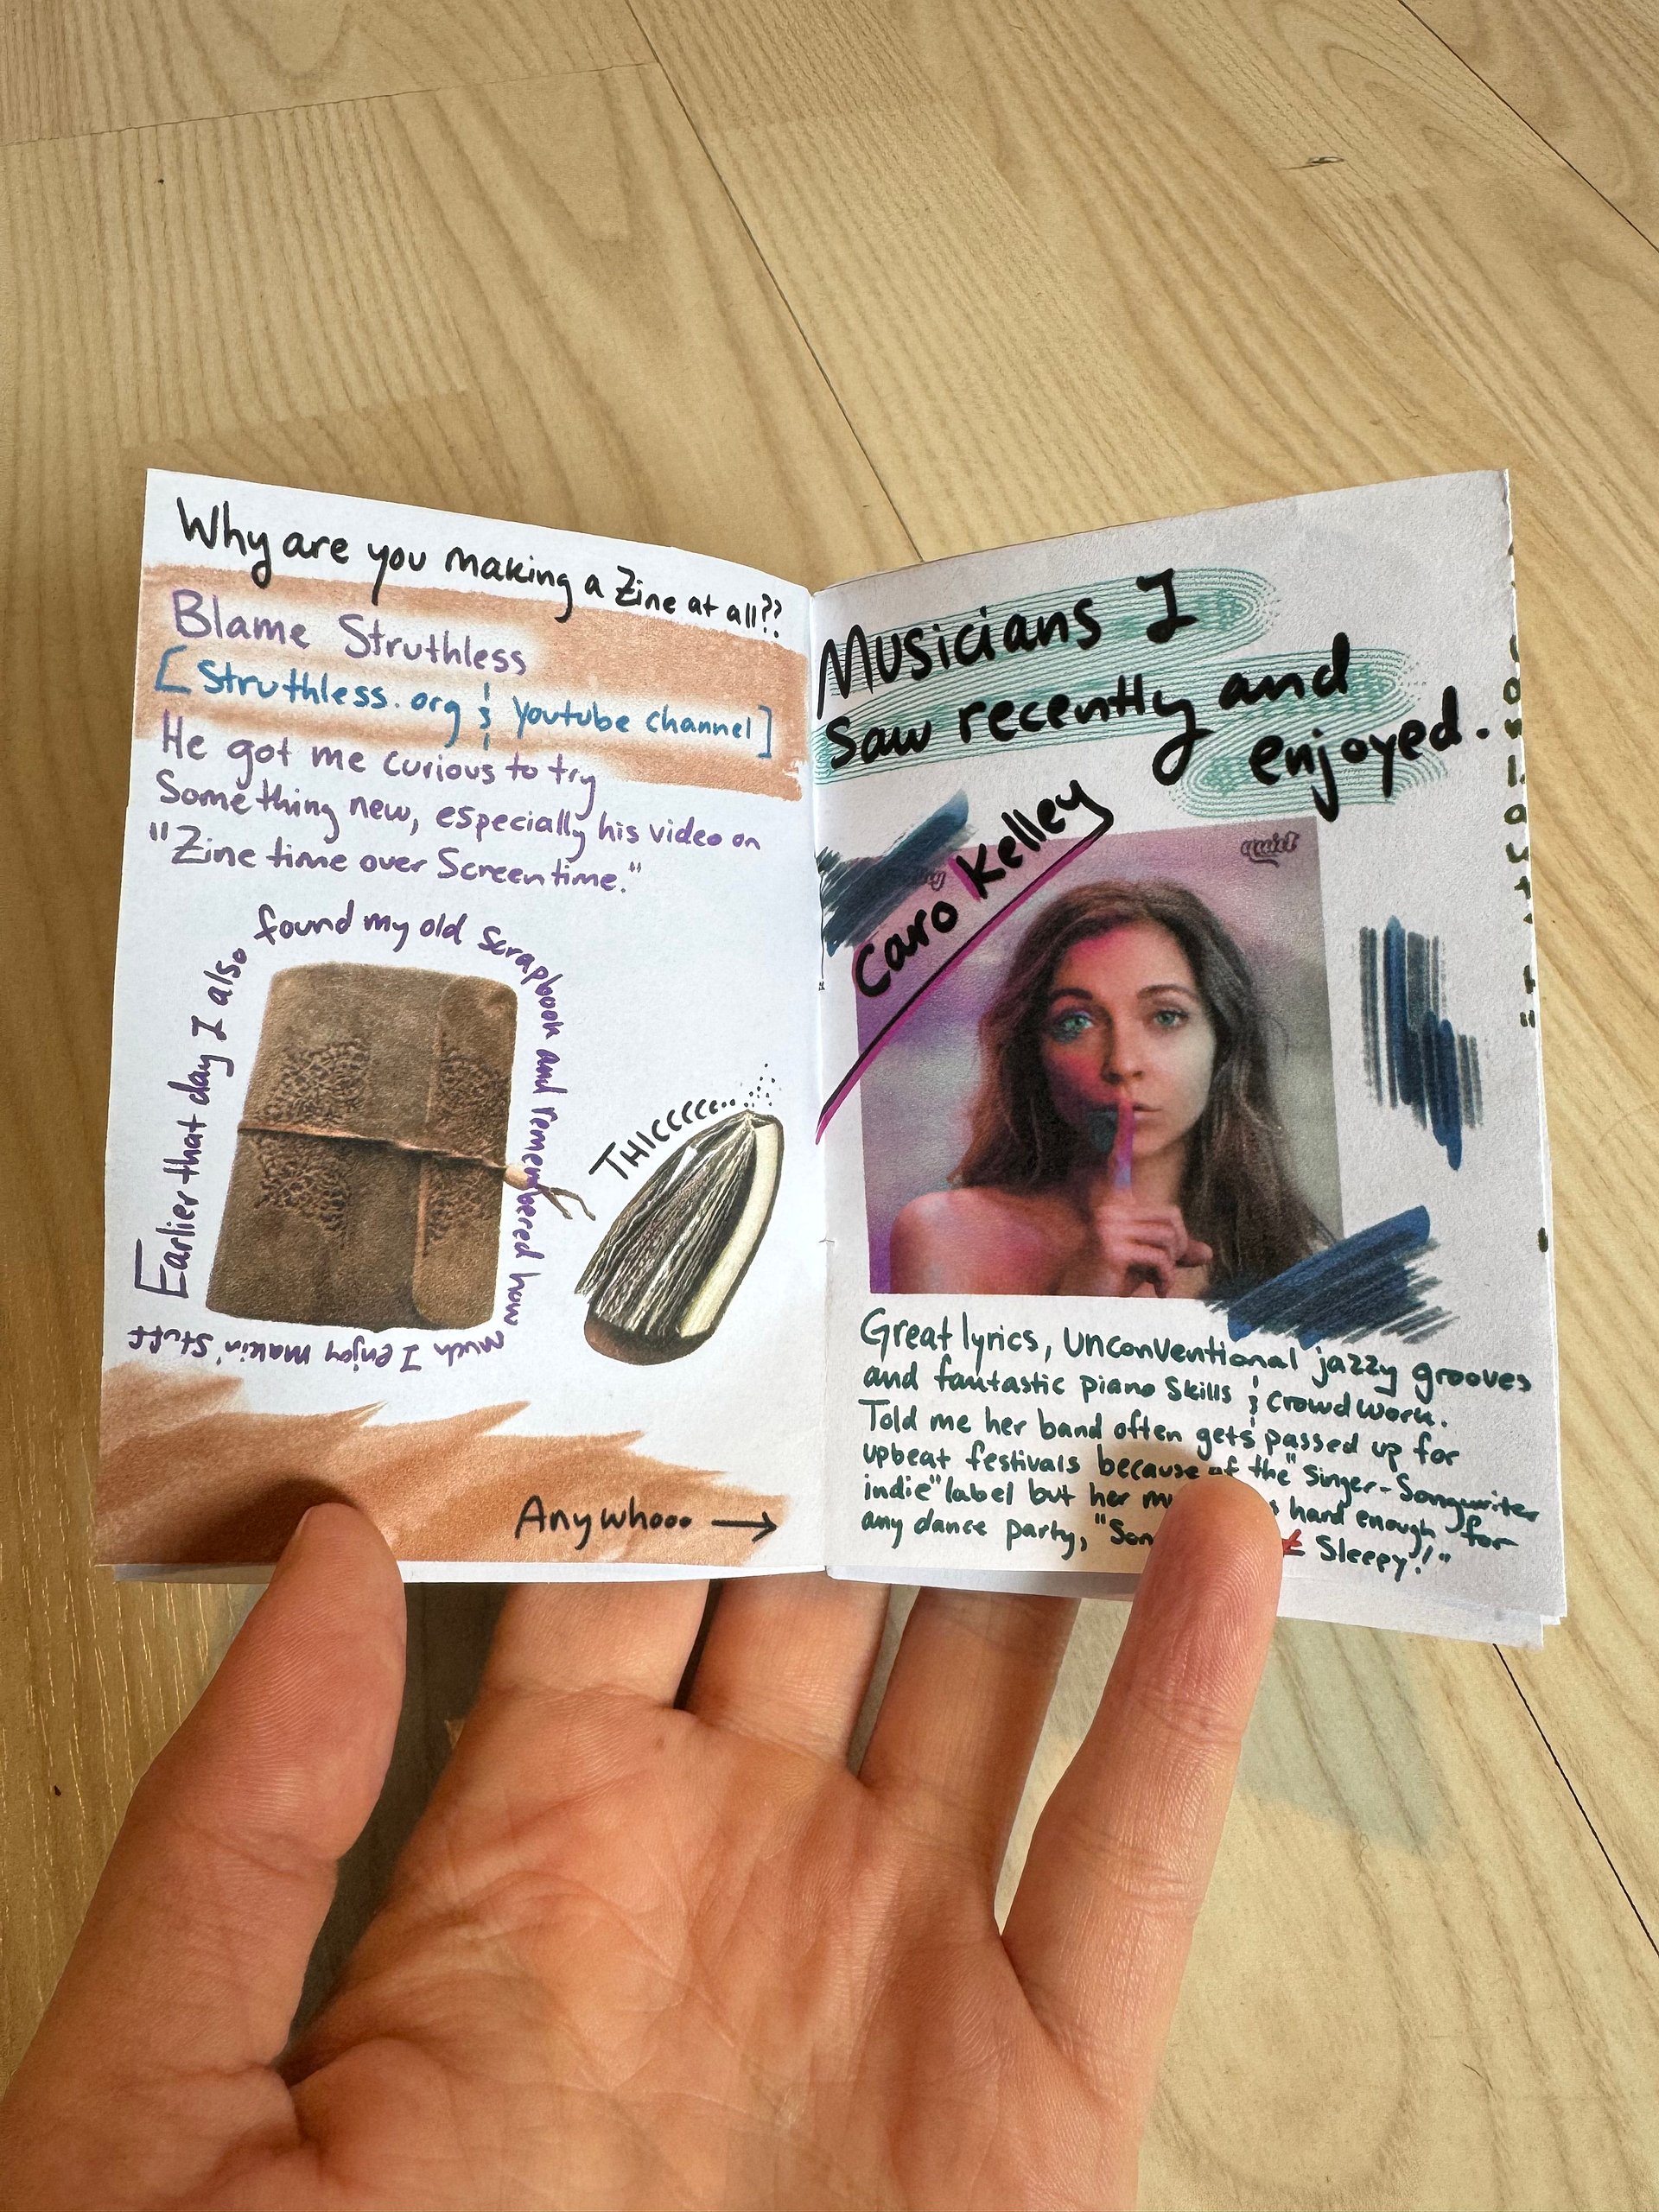 Why are you making a Zine at all??
Blame Struthless
[Struthless.org & youtube channel]
He got me curious to try
Something new, especially his video on
"Zine time over Screen time."
Earlier that day I also
found my old scrapbook and remembered how
much I enjoy makin' stuff
THICCCCC..
Anywhooo →
Musicians I
Saw recently and
enjoyed.
Caro Kelley
quiet
Great lyrics, unconventional jazzy grooves
and fantastic piano skills & crowd work.
Told me her band often gets passed up for
upbeat festivals because of the "Singer-Songwriter
indie" label but her hard enough for
any dance party, ≠ Sleepy!"